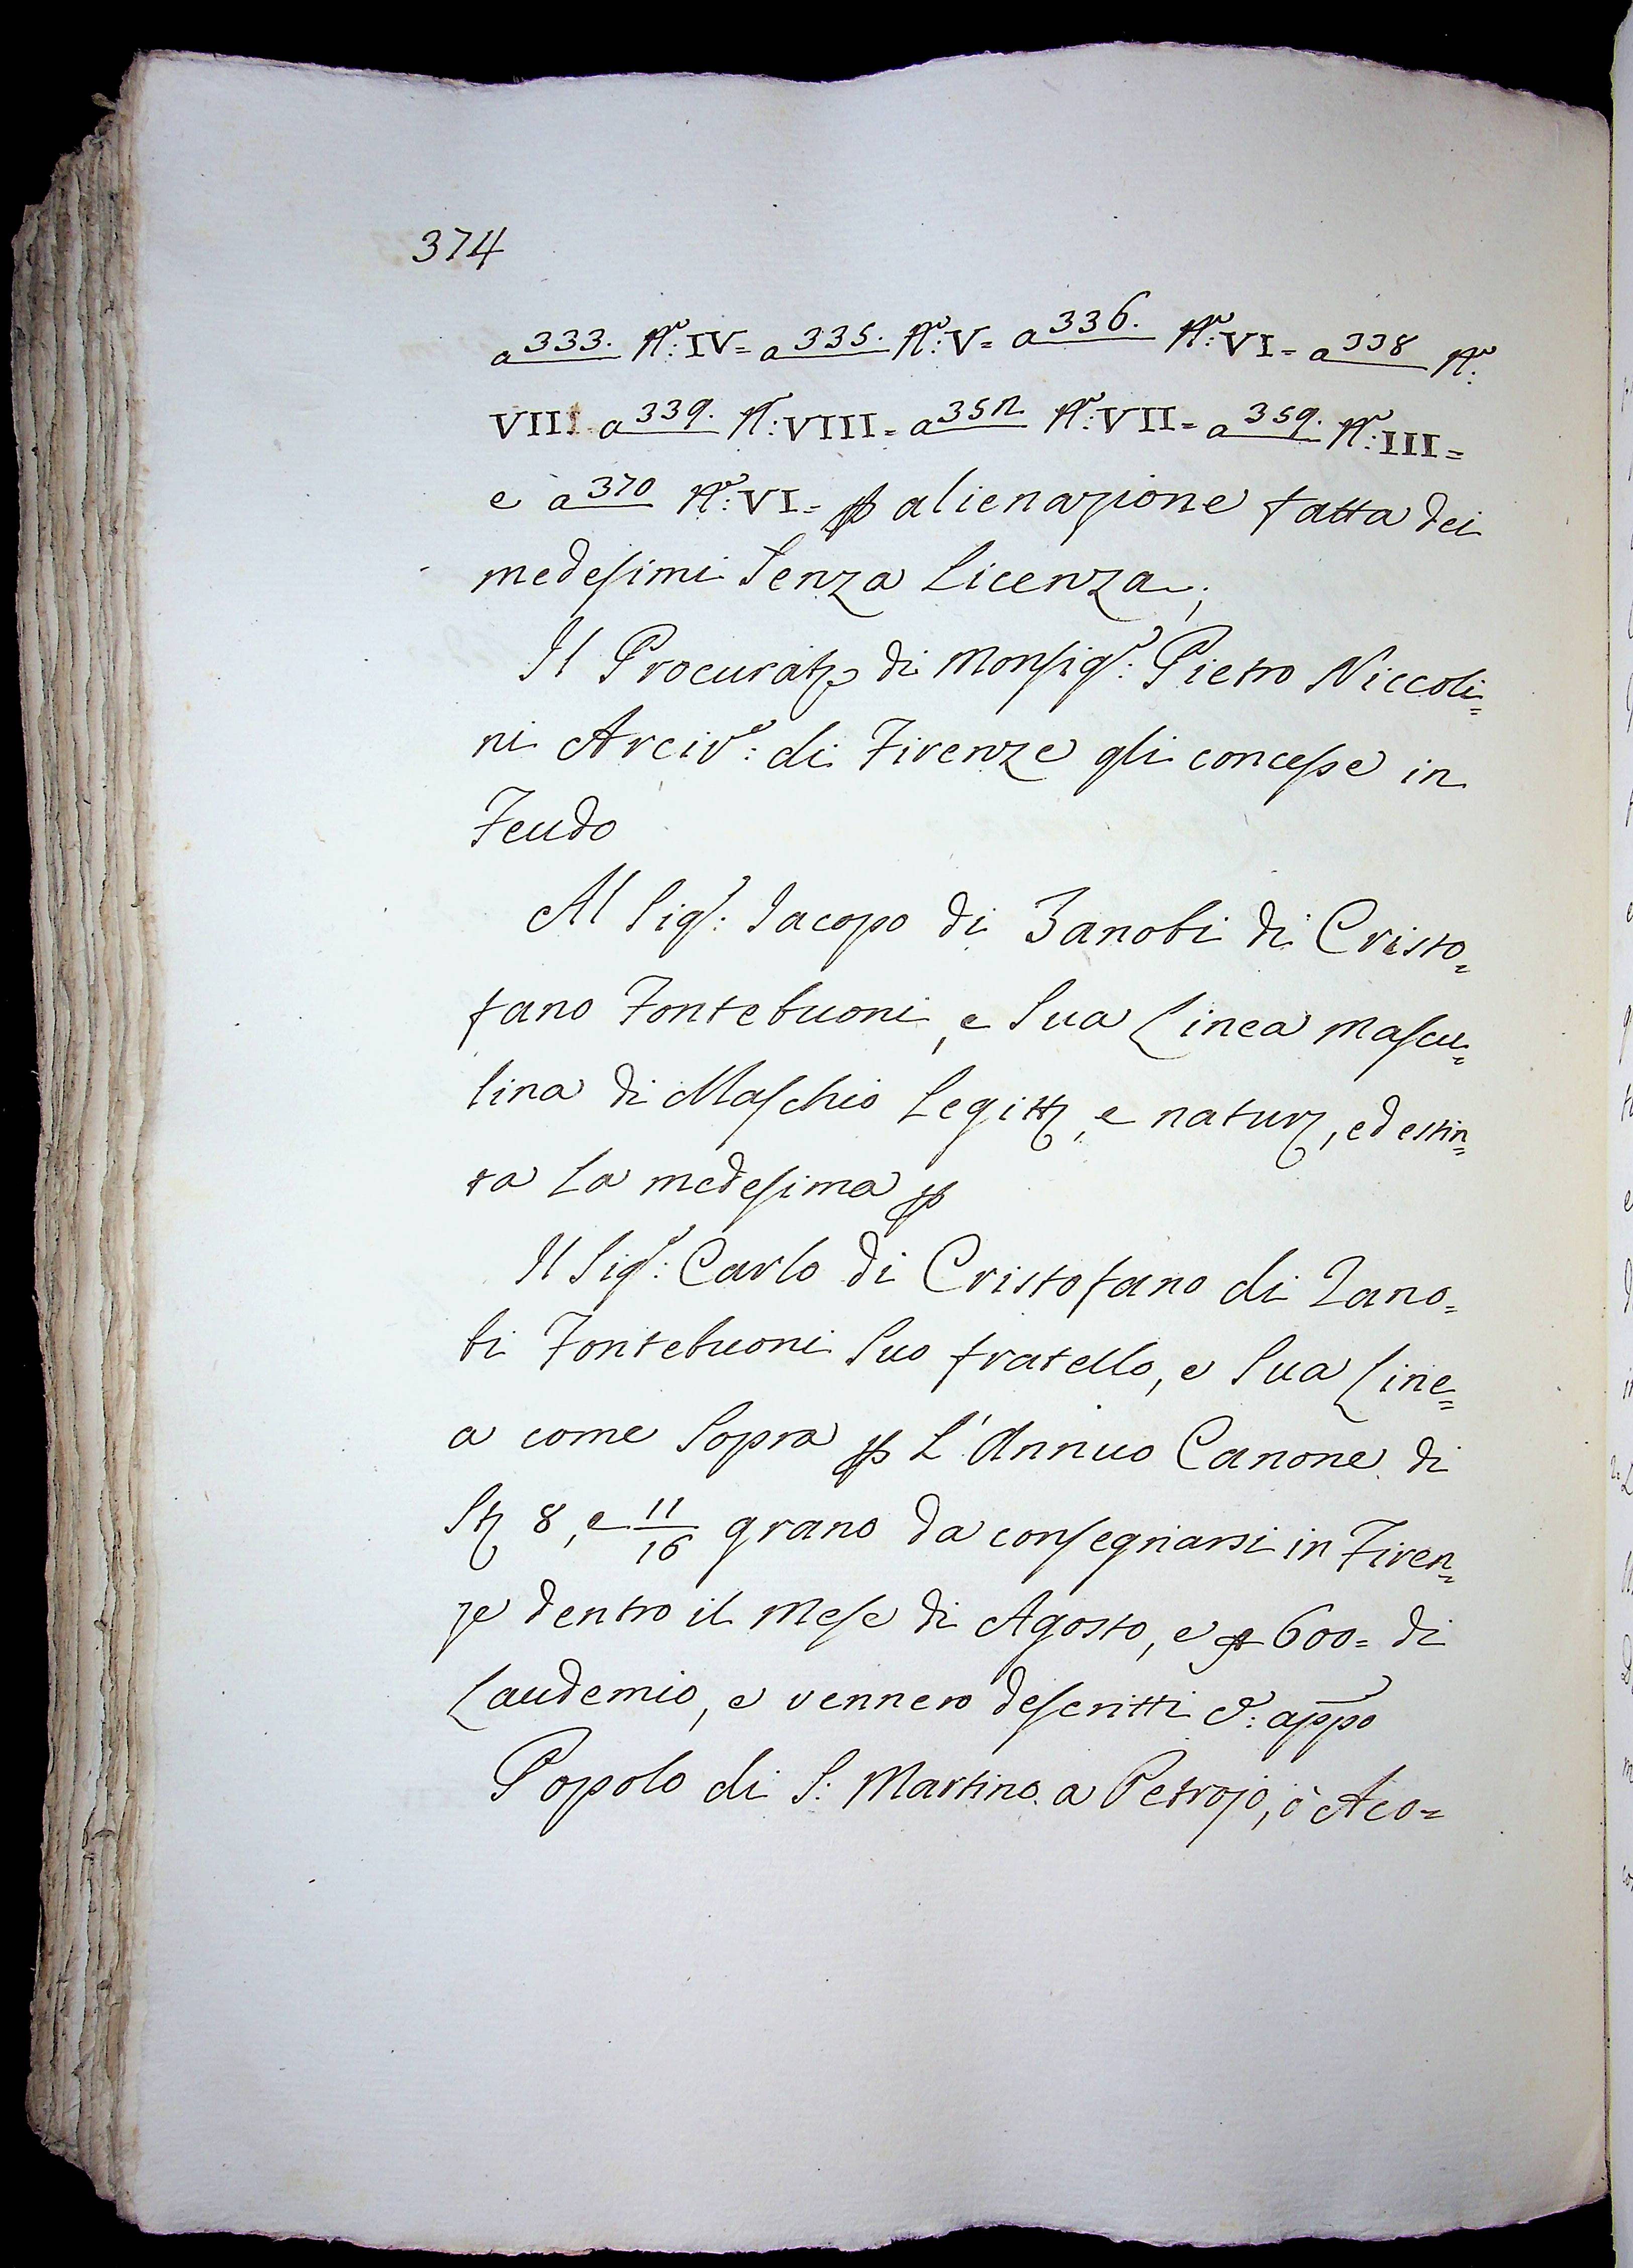 374
a 333. N.º: IV= a 335. N.º: V= a 336. N.º: VI= a 338 N.º:
VII= a 339. N.º: VIII= a 352 N.º: VII= a 359. N.º: III=
e à 370 N.º: VI= p alienazione fatta dei
medesimi Senza Licenza;
Il Procurat.e di Monsig.r: Pietro Niccoli=
ni Arciv.o: di Firenze gli concesse in
Feudo
Al Sig.r: Jacopo di Zanobi di Cristo=
fano Fontebuoni, e Sua Linea mascu=
lina di Maschio Legitt, e natur, ed estin=
ta La medesima p
Il Sig.r: Carlo di Cristofano di Zano=
bi Fontebuoni Suo fratello, e Sua Line=
a come Sopra p L'Annuo Canone di
St 8, e 11/16 grano da consegnarsi in Firen=
ze dentro il Mese di Agosto, e 600= di
Laudemio, e vennero descritti c: appo
Popolo di S: Martino a Petrojo, ò Aco=